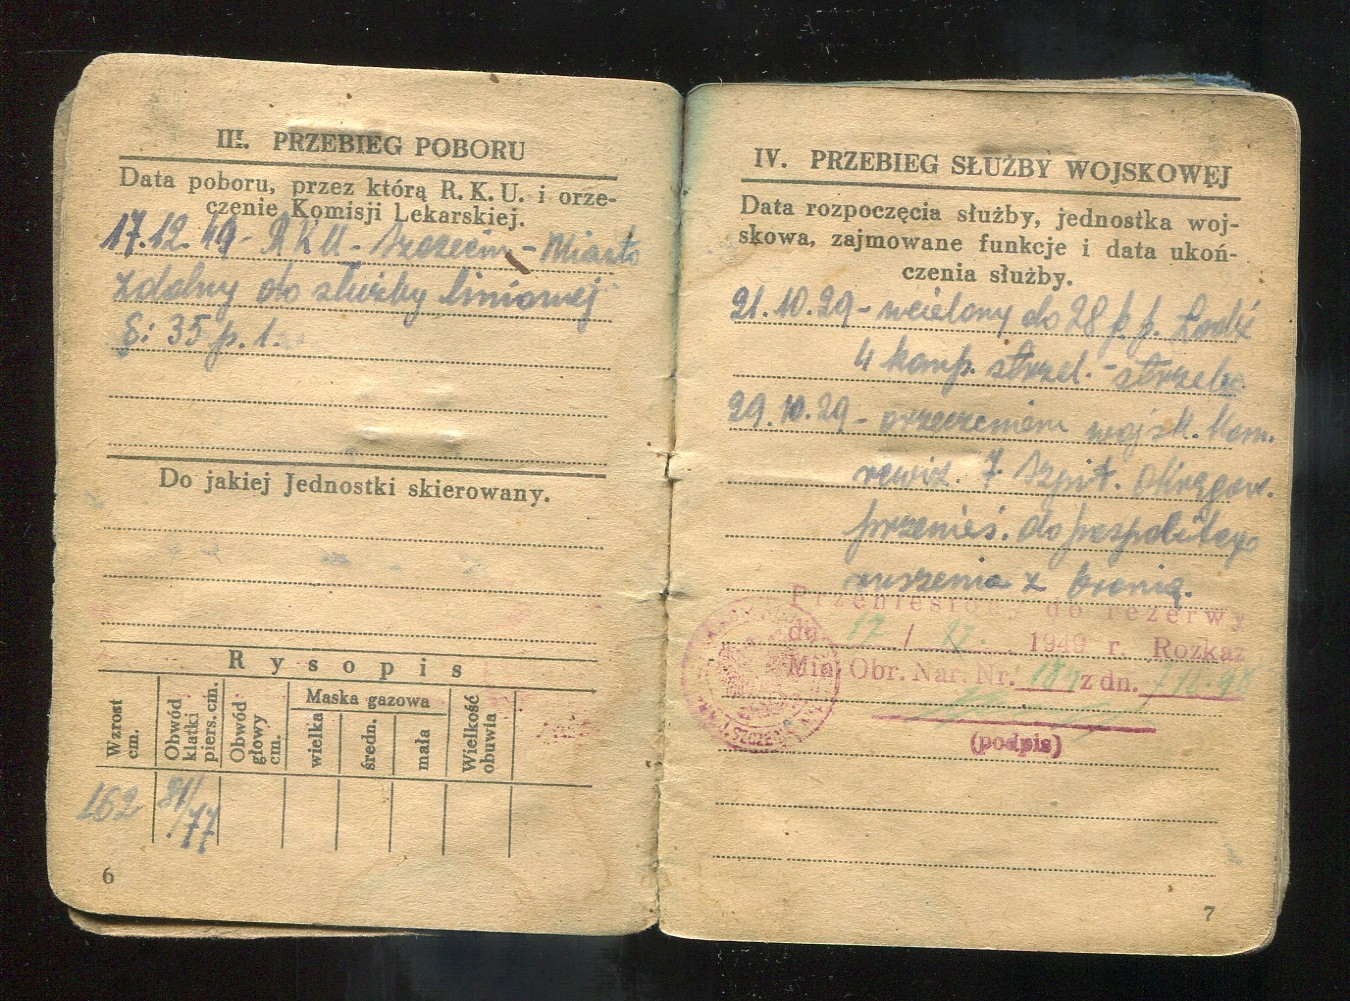 III. PRZEBIEG POBORU
Data poboru, przez którą R. K. U. i orze-
czenie Komisji Lekarskiej.
17.12.49 - RKU - Szczecin - Miasto
zdolny do służby liniowej
§: 35 p. 1.
Do jakiej Jednostki skierowany.
Rysopis
Wzrost cm.
Obwód klatki piers. cm.
Obwód głowy cm.
Maska gazowa
wielka
średn.
mała
Wielkość obuwia
162
81/77
6
IV. PRZEBIEG SŁUŻBY WOJSKOWEJ
Data rozpoczęcia służby, jednostka woj-
skowa, zajmowane funkcje i data ukoń-
czenia służby.
21.10.29 - wcielony do 28 p. p. Łódź
4 komp. strzel. - strzelec
29.10.29 - orzeczeniem wojsk. Kom.
rewiz. 7 Szpit. Okręgow.
przenieś. do pospolitego
ruszenia z bronią.
Przeniesiony do rezerwy
dn. 17 / XII. 1949 r. Rozkaz
Min. Obr. Nar. Nr. z dn.
(podpis)
7